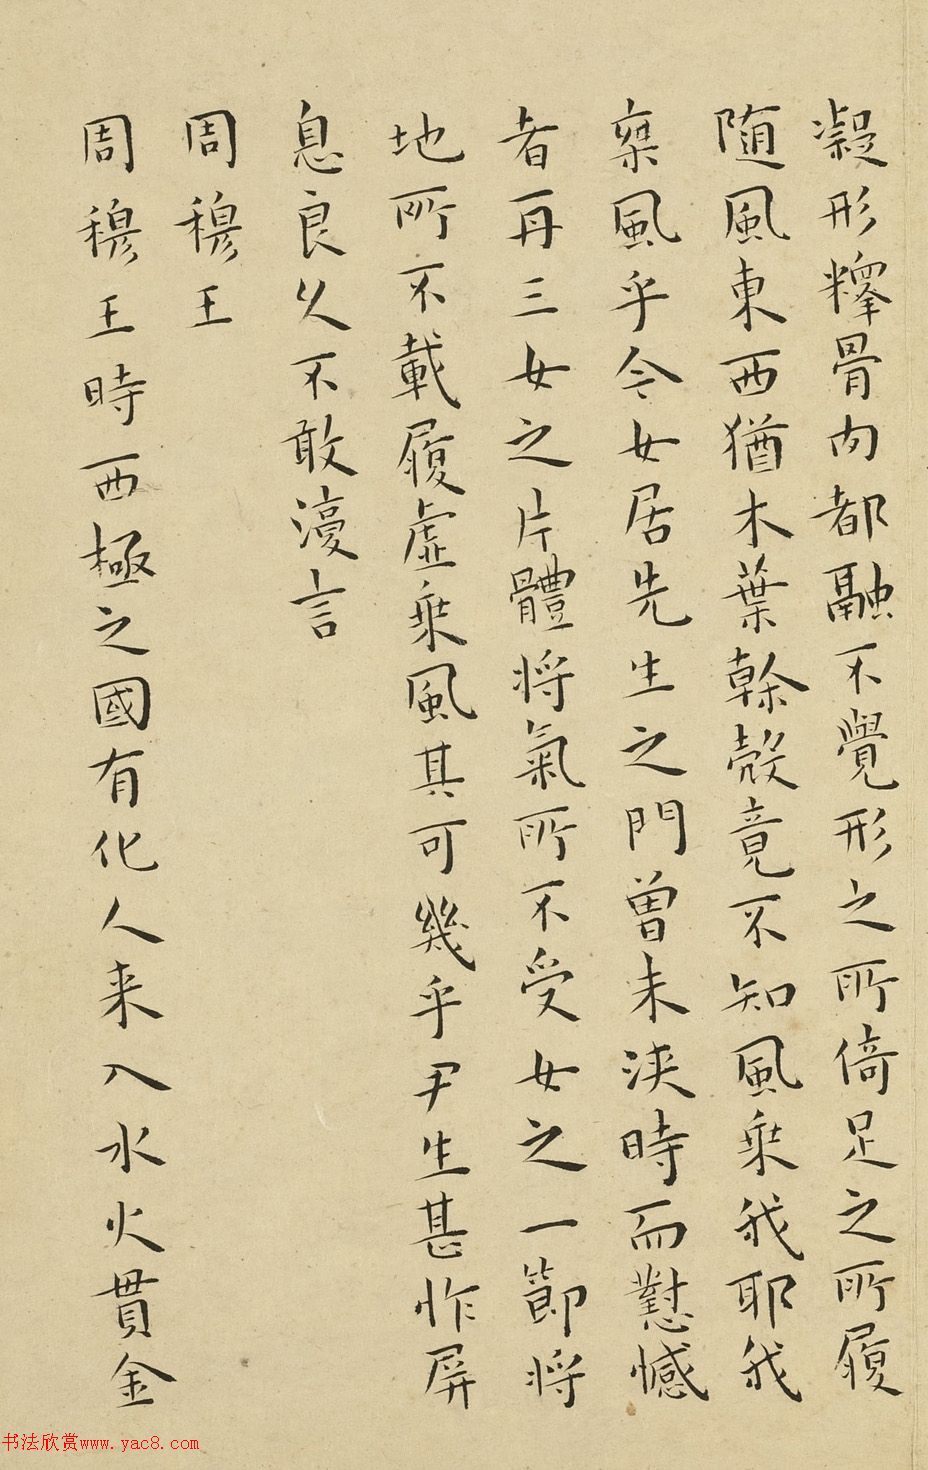 凝形釋骨肉都融不覺形之所倚足之所履
隨風東西猶木葉幹殼竟不知風乘我耶我
椉風乎今女居先生之門曾未浹時而懟憾
者再三女之片體將氣所不受女之一節將
地所不載履虛乘風其可幾乎尹生甚怍屏
息良久不敢濅言
周穆王
周穆王時西極之國有化人来入水火貫金
书法欣赏www.yac8.com